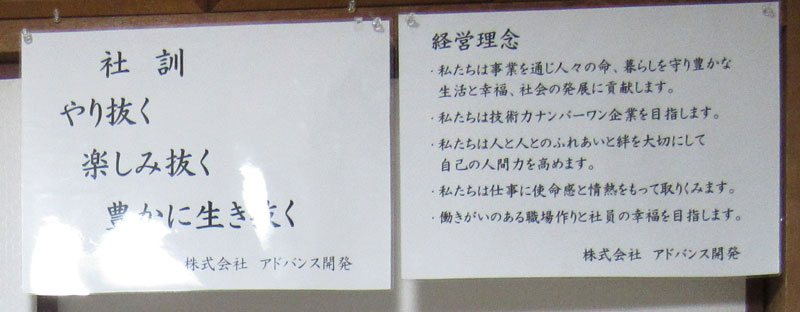 社 訓
やり抜く
楽しみ抜く
豊かに生き抜く
株式会社 アドバンス開発
経営理念
・私たちは事業を通じ人々の命、暮らしを守り豊かな
生活と幸福、社会の発展に貢献します。
・私たちは技術力ナンバーワン企業を目指します。
・私たちは人と人とのふれあいと絆を大切にして
自己の人間力を高めます。
・私たちは仕事に使命感と情熱をもって取りくみます。
・働きがいのある職場作りと社員の幸福を目指します。
株式会社 アドバンス開発